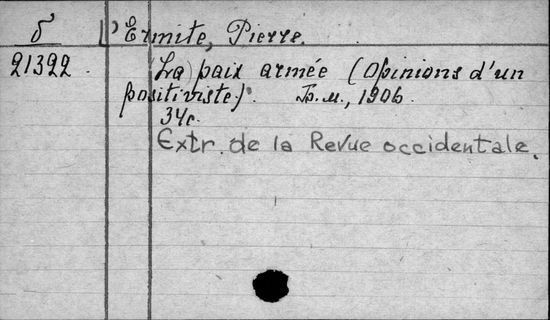 б L'Ermite, Pierre.
21322. (La) paix armée (Opinions d'un
positiviste).
1906.
34c.
Extr. de la Revue occidentale.